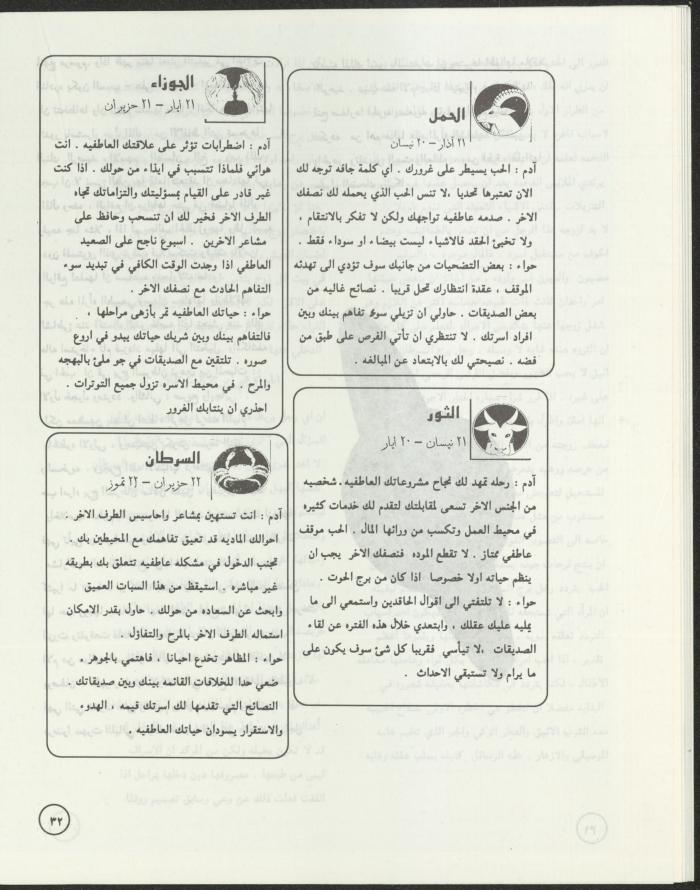 الحمل
٢١ آذار - ٢٠ نيسان
آدم : الحب يسيطر على غرورك . اي كلمة جافه توجه لك
الان تعتبرها تحديا ،لا تنس الحب الذي يحمله لك نصفك
الاخر . صدمه عاطفيه تواجهك ولكن لا تفكر بالانتقام ،
ولا تخبئ الحقد فالاشياء ليست بيضاء او سوداء فقط .
حواء : بعض التضحيات من جانبك سوف تؤدي الى تهدئه
الموقف ، عقدة انتظارك تحل قريبا . نصائح غاليه من
بعض الصديقات . حاولي ان تزيلي سوء تفاهم بينك وبين
افراد اسرتك . لا تنتظري ان تأتي الفرص على طبق من
فضه . نصيحتي لك بالابتعاد عن المبالغه .
الثور
٢١ نيسان - ٢٠ ايار
آدم : رحله تمهد لك نجاح مشروعاتك العاطفيه .شخصيه
من الجنس الاخر تسعى لمقابلتك لتقدم لك خدمات كثيره
في محيط العمل وتكسب من ورائها المال . الحب موقف
عاطفي ممتاز . لا تقطع الموده فنصفك الاخر يجب ان
ينظم حياته اولا خصوصا اذا كان من برج الحوت .
حواء : لا تلتفتي الى اقوال الحاقدين واستمعي الى ما
يمليه عليك عقلك ، وابتعدي خلال هذه الفتره عن لقاء
الصديقات ،لا تيأسي فقريبا كل شئ سوف يكون على
ما يرام ولا تستبقي الاحداث .
الجوزاء
٢١ ايار - ٢١ حزيران
آدم : اضطرابات تؤثر على علاقتك العاطفيه . انت
هوائي فلماذا تتسبب في ايذاء من حولك . اذا كنت
غير قادر على القيام بمسؤليتك والتزاماتك تجاه
الطرف الاخر فخير لك ان تنسحب وحافظ على
مشاعر الاخرين . اسبوع ناجح على الصعيد
العاطفي اذا وجدت الوقت الكافي في تبديد سوء
التفاهم الحادث مع نصفك الاخر .
حواء : حياتك العاطفيه تمر بأزهى مراحلها ،
فالتفاهم بينك وبين شريك حياتك يبدو في اروع
صوره . تلتقين مع الصديقات في جو ملئ بالبهجه
والمرح . في محيط الاسره تزول جميع التوترات .
احذري ان ينتابك الغرور
السرطان
٢٢ حزيران - ٢٢ تموز
آدم : انت تستهين بمشاعر واحاسيس الطرف الاخر .
احوالك الماديه قد تعيق تفاهمك مع المحيطين بك .
تجنب الدخول في مشكله عاطفيه تتعلق بك بطريقه
غير مباشره . استيقظ من هذا السبات العميق
وابحث عن السعاده من حولك . حاول بقدر الامكان
استماله الطرف الاخر بالمرح والتفاؤل .
حواء : المظاهر تخدع احيانا ، فاهتمي بالجوهر .
ضعي حدا للخلافات القائمه بينك وبين صديقاتك .
النصائح التي تقدمها لك اسرتك قيمه ، الهدوء
والاستقرار يسودان حياتك العاطفيه .
٣٢